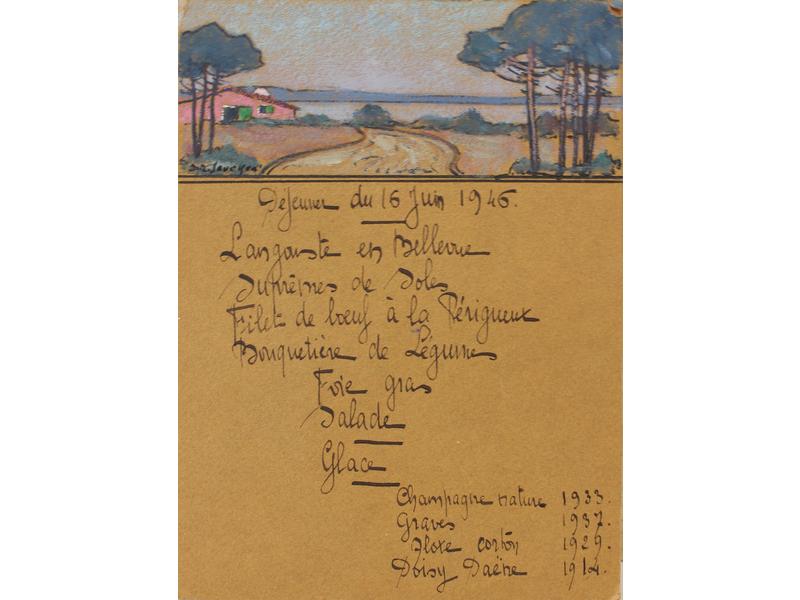 Déjeuner du 16 Juin 1946.
Langouste en Bellevue
Suprêmes de Soles
Filet de bœuf à la Périgueux
Bouquetière de Légumes
Foie gras
Salade
Glace
Champagne nature 1933.
Graves 1937.
Aloxe corton 1929.
Doisy Daëne 1914.